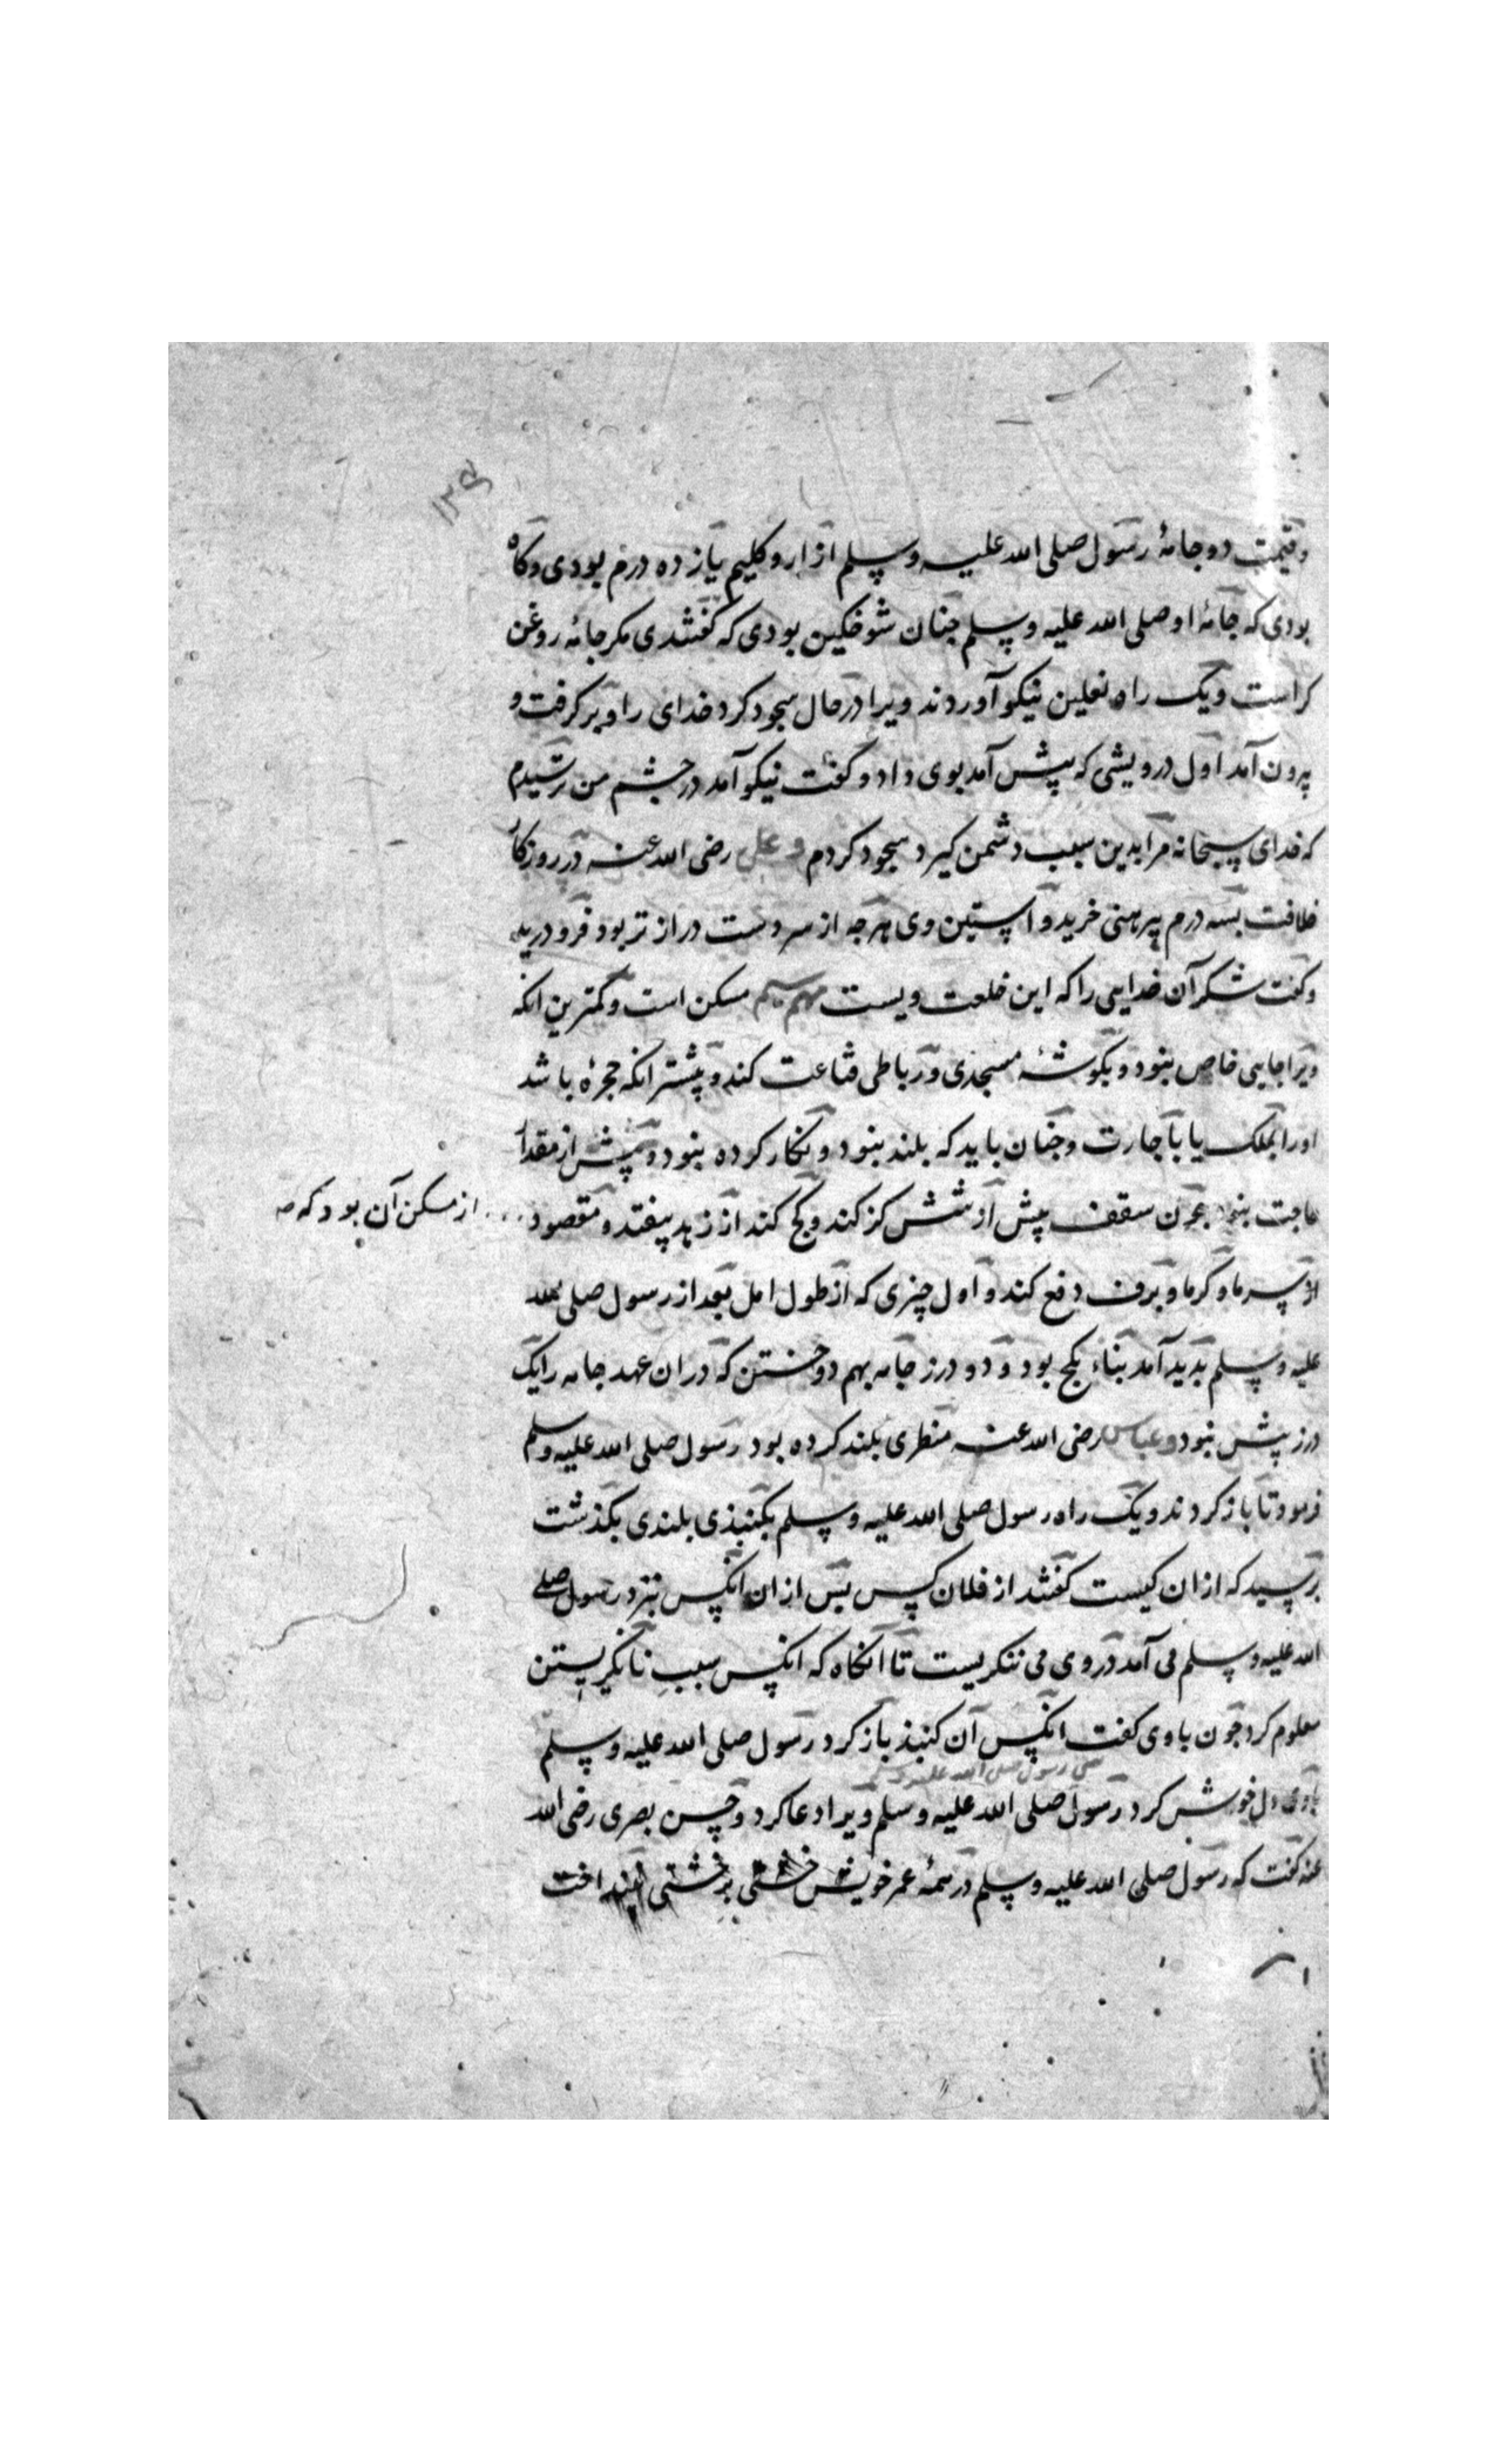 ۱۲۴
وقیمت دو جامهٔ رسول صلی الله علیه وسلم از ازار و کلیم یازده درم بودی وکاه
بودی که جامهٔ او صلی الله علیه وسلم جنان شوخکین بودی که کفتندی مکر جامهٔ روغن
کراست ویک راه نعلین نیکو آوردند ویرا در حال سجود کرد خدای را وبر کرفت و
بیرون آمد اول درویشی که پیش آمد بوی داد و کفت نیکو آمد در چشم من ترسیدم
که خدای سبحانه مرا بدین سبب دشمن کیرد سجود کردم و علی رضی الله عنه در روزکار
خلافت بسه درم پیرهنی خرید و آستین وی هرچه از سر دست دراز تر بود فرو درید
وکفت شکر آن خدایی را که این خلعت ویست مهم سیم مسکن است وکمترین انکه
ویرا جایی خاص نبود و بکوشهٔ مسجدی ورباطی قناعت کند وبیشتر انکه حجرهٔ باشد
اورا بملک یا باجارت وجنان باید که بلند نبود و نکار کرده نبود وبیش از مقدار
حاجت نبود جون سقف بیش از شش کز کند وکج کند از زهد بیفتد و مقصود ... از مسکن آن بود که
از سرما وکرما وبرف دفع کند و اول چیزی که از طول امل بعد از رسول صلی الله
علیه وسلم بدید آمد بناء بکج بود و دو درز جامه بهم دوختن که در ان عهد جامه را یک
درز بیش نبود و عباس رضی الله عنه منظری بلند کرده بود رسول صلی الله علیه وسلم
فرمود تا باز کردند ویک راه رسول صلی الله علیه وسلم بکنبذی بلندی بکذشت
برسید که از ان کیست کفتند از فلان کس بس از ان انکس نزد رسول صلی
الله علیه وسلم می آمد در وی می ننکریست تا انکاه که انکس سبب نانکریستن
معلوم کرد جون باوی کفت انکس آن کنبذ باز کرد رسول صلی الله علیه وسلم
باوی دل خوش کرد رسول صلی الله علیه وسلم ویرا دعا کرد وحسن بصری رضی الله
عنه کفت که رسول صلی الله علیه وسلم در همهٔ عمر خویش خشتی بر خشتی